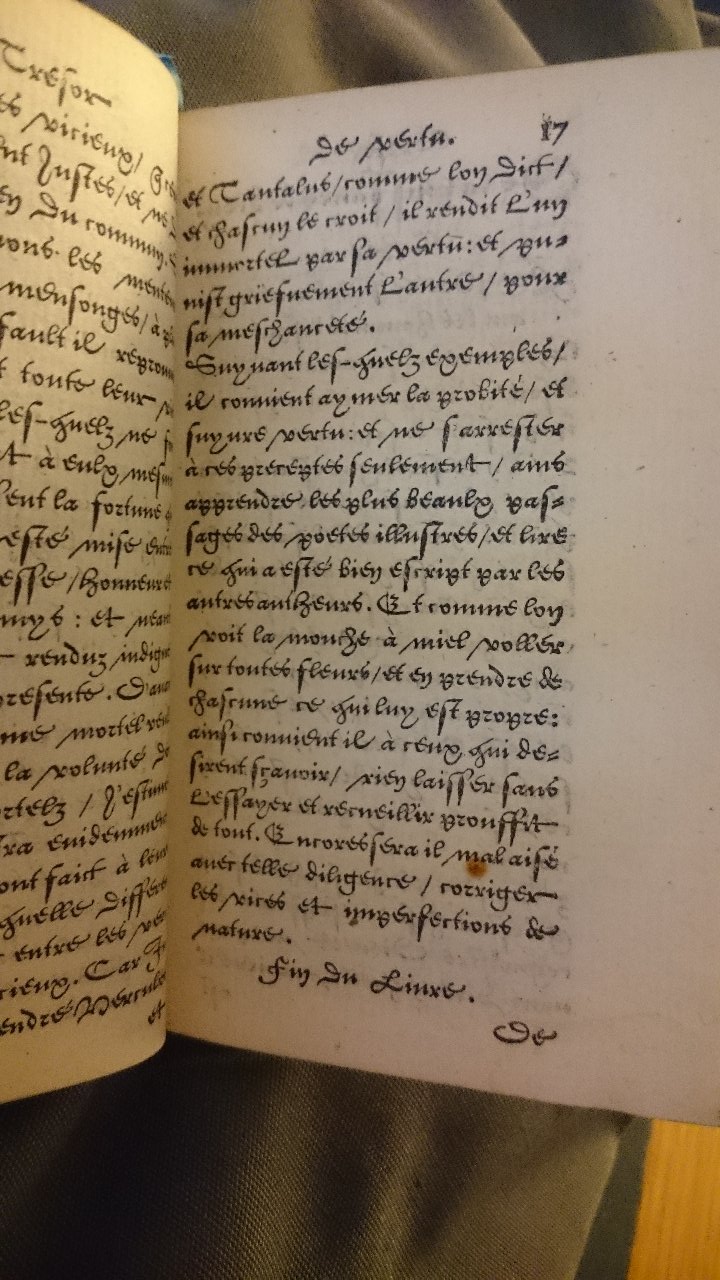 Tresor
es vicieux/
nt Justes/et ne
en du commun
ions. les
mensonges/à
fault il
t toute leur
les-quelz ne
t à eulx
ent la fortune
esté mise
esse/honneurs
mys : et
t renduz
presente.
me mortel
la volunté
ortelz / J'estime
ra
ont faict à leur
quelle
entre les
cieux. Car
endre Hercules
et
de vertu. 17
et Tantalus/comme lon dict/
et chascun le croit / il rendit L'un
immortel par sa vertu: et pu-
nist griefuement L'autre / pour
sa meschanceté.
Suyuant les-quelz exemples/
il conuient aymer la probité/ et
suyure vertu: et ne s'arrester
à ces preceptes seulement / ains
apprendre les plus beaulx pas-
sages des poetes illustres/et lire
ce qui a esté bien escript par les
autres autheurs. Et comme lon
voit la mouche à miel voller
sur toutes fleurs/et en prendre de
chascune ce qui luy est propre:
ainsi conuient il à ceux qui de-
sirent sçauoir/ rien laisser sans
L'essayer et recueillir prouffit
de tout. Encores sera il mal aisé
auec telle diligence / corriger
les vices et imperfections de
nature.
Fin du Liure.
De